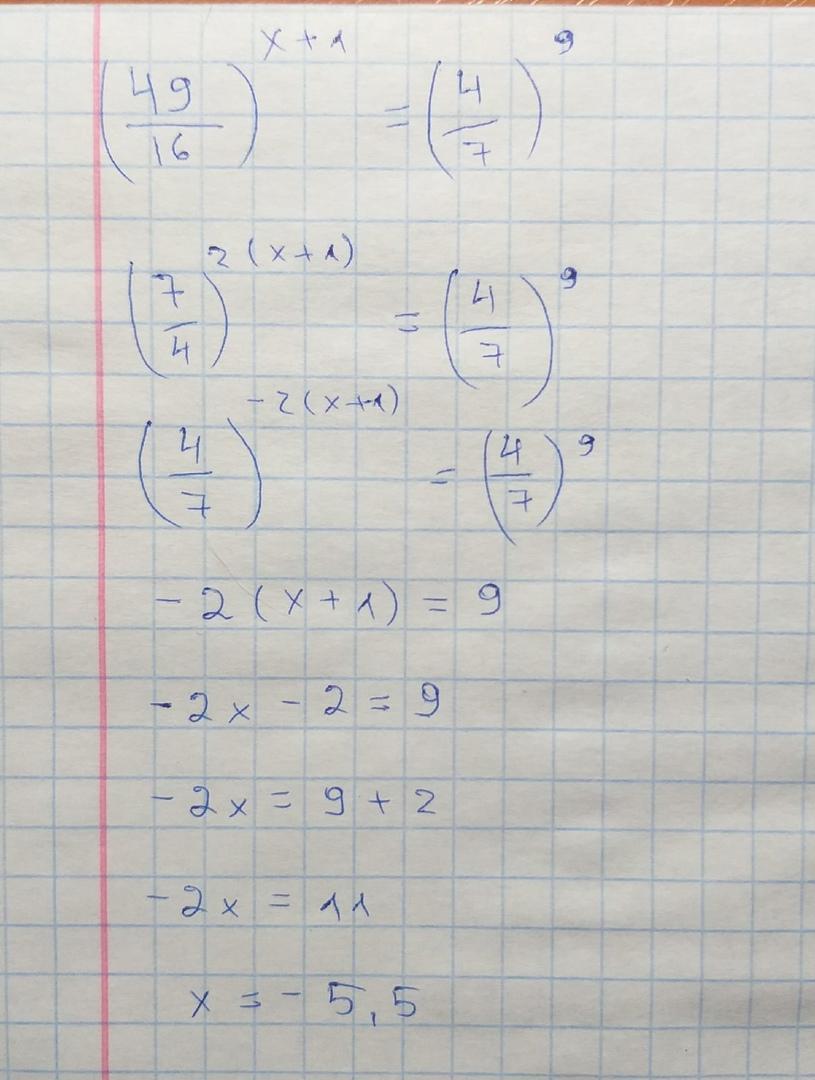 (49/16)^(x+1) = (4/7)^9
(7/4)^(2(x+1)) = (4/7)^9
(4/7)^(-2(x+1)) = (4/7)^9
-2(x+1) = 9
-2x - 2 = 9
-2x = 9 + 2
-2x = 11
x = -5,5